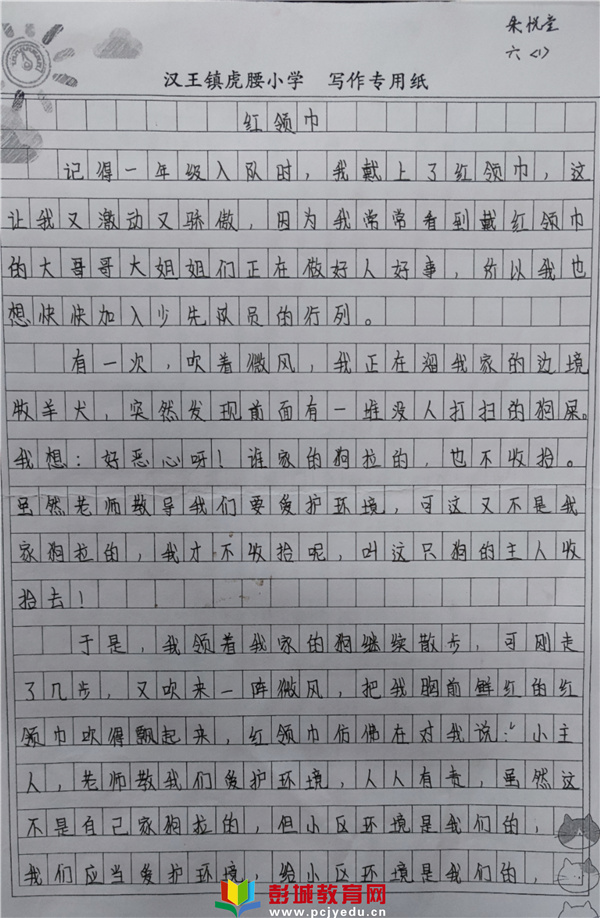 朱悦堂
六〈1〉
汉王镇虎腰小学 写作专用纸
红领巾
记得一年级入队时，我戴上了红领巾，这
让我又激动又骄傲，因为我常常看到戴红领巾
的大哥哥大姐姐们正在做好人好事，所以我也
想快快加入少先队员的行列。
有一次，吹着微风，我正在溜我家的边境
牧羊犬，突然发现前面有一堆没人打扫的狗屎。
我想：好恶心呀！谁家的狗拉的，也不收拾。
虽然老师教导我们要爱护环境，可这又不是我
家狗拉的，我才不收拾呢，叫这只狗的主人收
拾去！
于是，我领着我家的狗继续散步，可刚走
了几步，又吹来一阵微风，把我胸前鲜红的红
领巾吹得飘起来，红领巾仿佛在对我说：“小主
人，老师教我们爱护环境，人人有责，虽然这
不是自己家狗拉的，但小区环境是我们的，
我们应当爱护环境，给小区环境是我们的，
彭城教育网
www.pcjyedu.cn